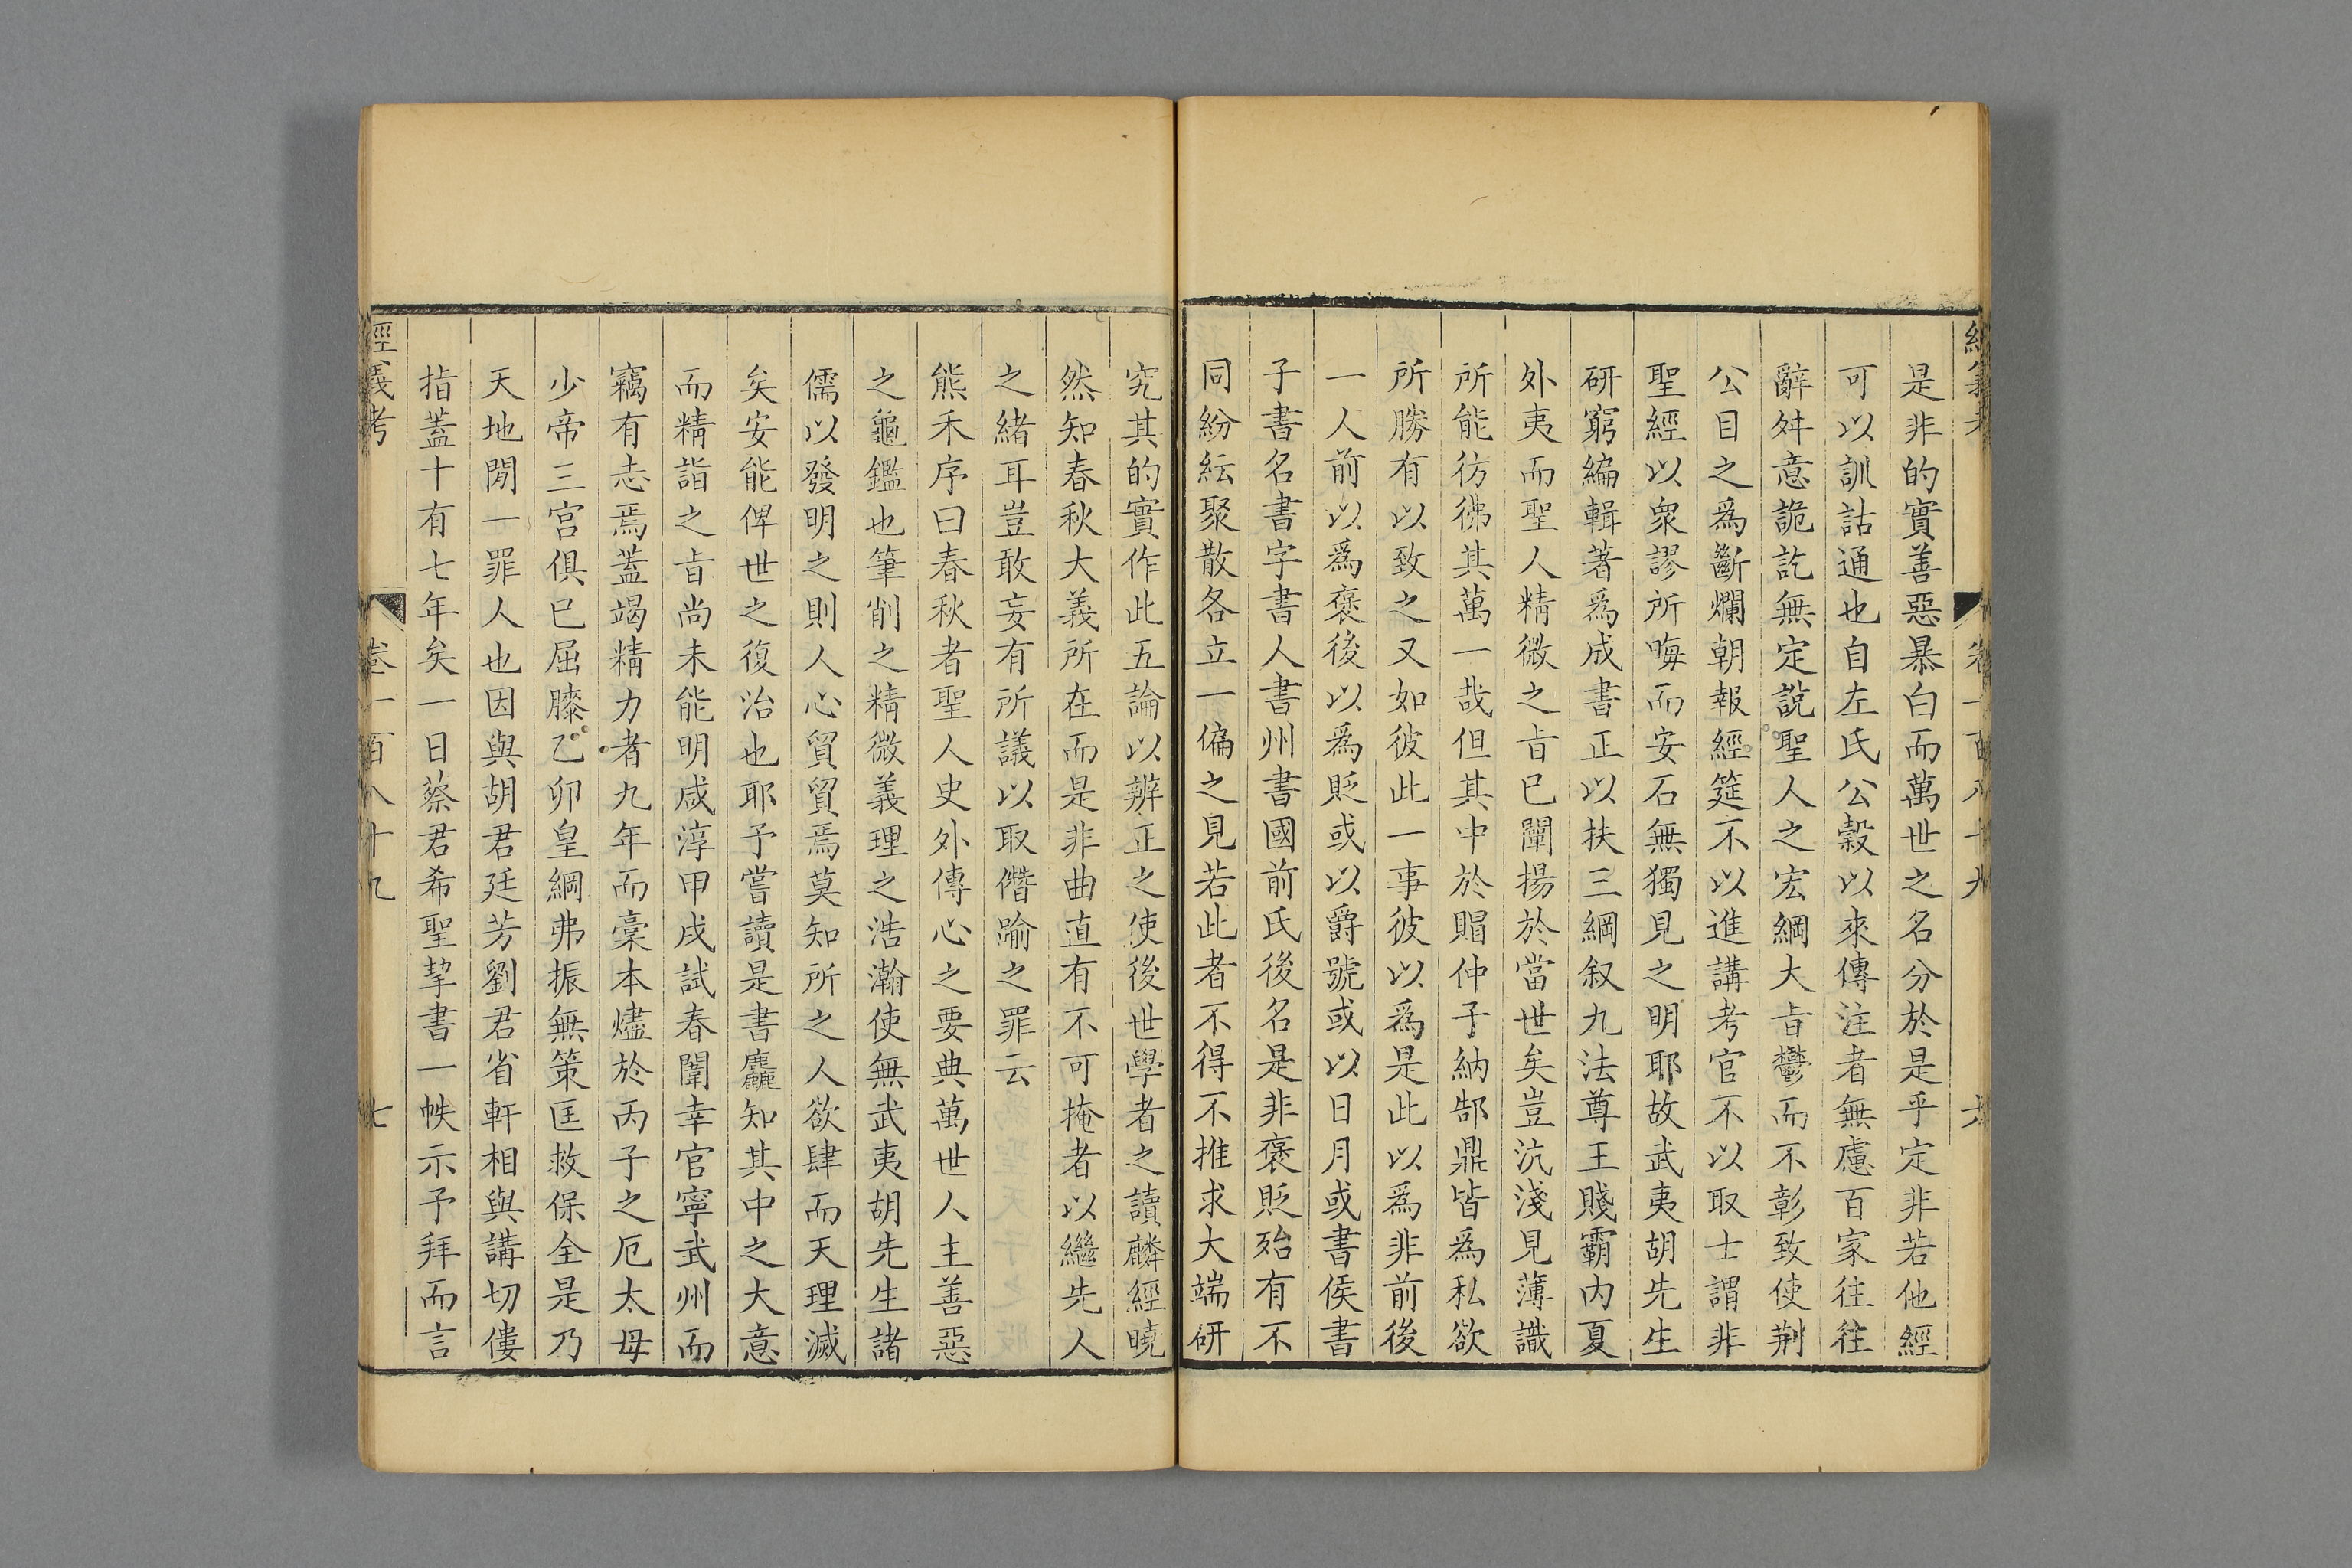 經義考 卷一百八十九 六
是非的實善惡暴白而萬世之名分於是乎定非若他經
可以訓詁通也自左氏公穀以來傳注者無慮百家往往
辭舛意詭訖無定說聖人之宏綱大㫖鬱而不彰致使荆
公目之爲斷爛朝報經筵不以進講考官不以取士謂非
聖經以衆謬所晦而安石無獨見之明耶故武夷胡先生
研窮編輯著爲成書正以扶三綱叙九法尊王賤霸内夏
外夷而聖人精微之㫖已闡揚於當世矣豈沆淺見薄識
所能彷彿其萬一哉但其中於賵仲子納郜鼎皆爲私欲
所勝有以致之又如彼此一事彼以爲是此以爲非前後
一人前以爲褒後以爲貶或以爵號或以日月或書侯書
子書名書字書人書州書國前氏後名是非褒貶殆有不
同紛紜聚散各立一偏之見若此者不得不推求大端研
究其的實作此五論以辨正之使後世學者之讀麟經曉
然知春秋大義所在而是非曲直有不可掩者以繼先人
之緒耳豈敢妄有所議以取僭踰之罪云
熊禾序曰春秋者聖人史外傳心之要典萬世人主善惡
之龜鑑也筆削之精微義理之浩瀚使無武夷胡先生諸
儒以發明之則人心貿貿焉莫知所之人欲肆而天理滅
矣安能俾世之復治也耶予嘗讀是書麤知其中之大意
而精詣之㫖尚未能明咸淳甲戌試春闈幸官寧武州而
竊有志焉蓋竭精力者九年而稾本燼於丙子之厄太母
少帝三宮俱已屈膝乙卯皇綱弗振無策匡救保全是乃
天地閒一罪人也因與胡君廷芳劉君省軒相與講切僂
指蓋十有七年矣一日蔡君希聖挈書一帙示予拜而言
經義考 卷一百八十九 七